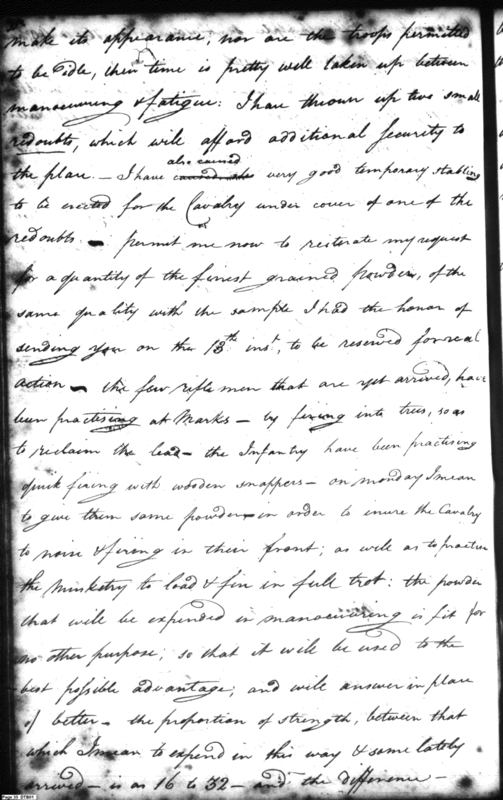 make its appearance; nor are the troops permitted
to be idle, their time is pretty well taken up between
manoeuvring & fatigue: I have thrown up two small
redoubts, which will afford additional security to
the place. — I have also caused very good temporary stabling
to be erected for the Cavalry under cover of one of the
redoubts. — permit me now to reiterate my request
for a quantity of the finest grained powder, of the
same quality with the sample I had the honor of
sending you on the 13th inst, to be reserved for real
action — the few rifle men that are yet arrived, have
been practising at Marks — by firing into trees, so as
to reclaim the lead — the Infantry have been practising
quick firing with wooden snappers — on monday I mean
to give them some powder in order to inure the Cavalry
to noise & firing in their front; as well as to practice
the Musketry to load & fire in full trot: the powder
that will be expended in manoeuvring is fit for
no other purpose; so that it will be used to the
best possible advantage; and will answer in place
of better — the proportion of strength, between that
which I mean to expend in this way & some lately
arrived — is as 16 to 32 — and the difference —